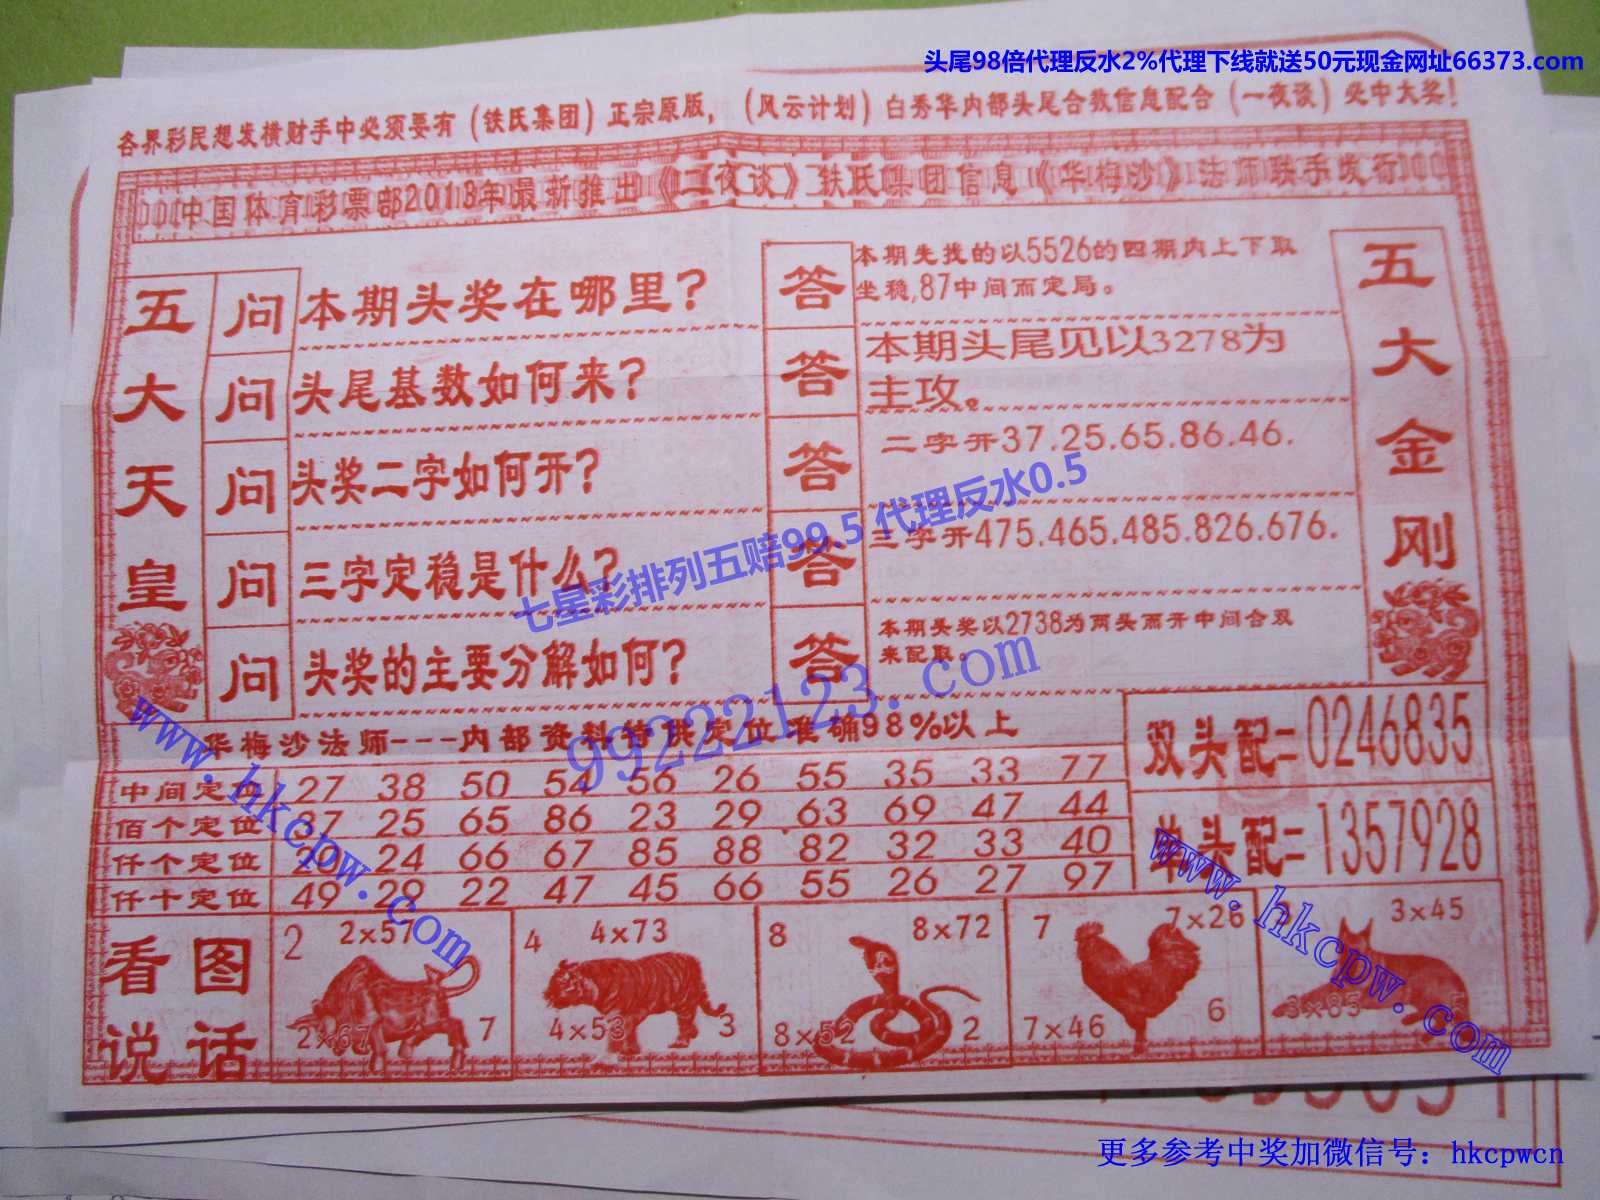 头尾98倍代理反水2%代理下线就送50元现金网址66373.com
各界彩民想发横财手中必须要有(铁氏集团)正宗原版,(风云计划)白秀华内部头尾合数信息配合(一夜谈)必中大奖!
中国体育彩票部2013年最新推出《一夜谈》铁氏集团信息《华梅沙》法师联手发行
五大天皇
问 本期头奖在哪里?
答 本期先找的以5526的四期内上下取
坐稳,87中间而定局。
问 头尾基数如何来?
答 本期头尾见以3278为
主攻。
问 头奖二字如何开?
答 二字开37.25.65.86.46.
问 三字定稳是什么?
答 三字开475.465.485.826.676.
问 头奖的主要分解如何?
答 本期头奖以2738为两头而开中间合双
来配取。
五大金刚
七星彩排列五赔99.5 代理反水0.5
99222123.com
www.hkcpw.com
华梅沙法师---内部资料特供定位准确98%以上
中间定位 27 38 50 54 56 26 55 35 33 77
佰个定位 37 25 65 86 23 29 63 69 47 44
仟个定位 20 24 66 67 85 88 82 32 33 40
仟十定位 49 29 22 47 45 66 55 26 27 97
双头配=0246835
单头配=1357928
www.hkcpw.com
看图
说话
2 2×57
2×67 7
4 4×73
4×53 3
8 8×72
8×52 2
7 7×26
7×46 6
3×45
3×85
更多参考中奖加微信号：hkcpwcn